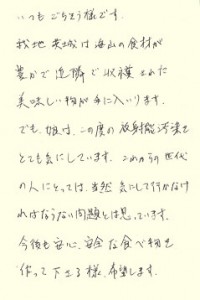 いつもごちそう様です。
我地 茨城は海山の食材が
豊かで近隣で収穫された
美味しい物が手に入ります。
でも、娘は、この度の放射能汚染を
とても気にしています。これからの世代
の人にとっては、当然気にして行かなけ
ればならない問題とは思っています。
今後も安心、安全な食べ物を
作って下さる様、希望します。